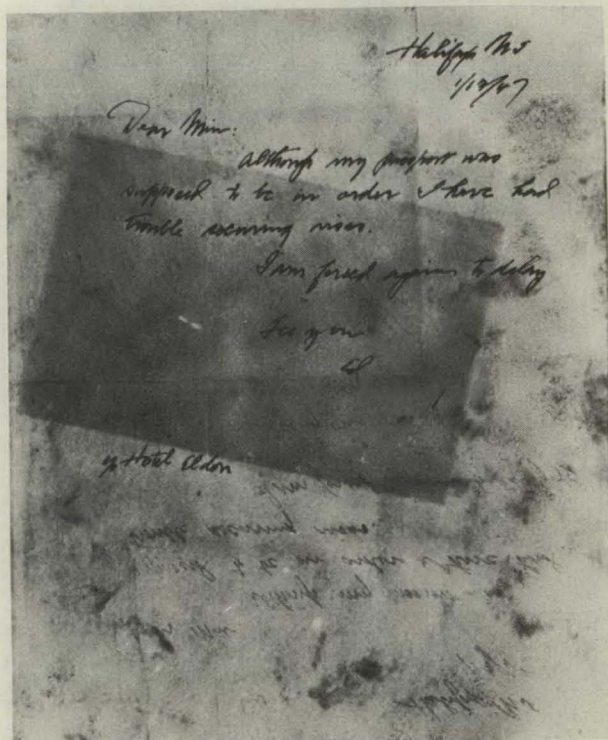 Halifax NS
1/18/27
Dear Min:
Although my passport was
supposed to be in order I have had
trouble securing visas.
I am forced again to delay
See you
Al
Hotel Eldon